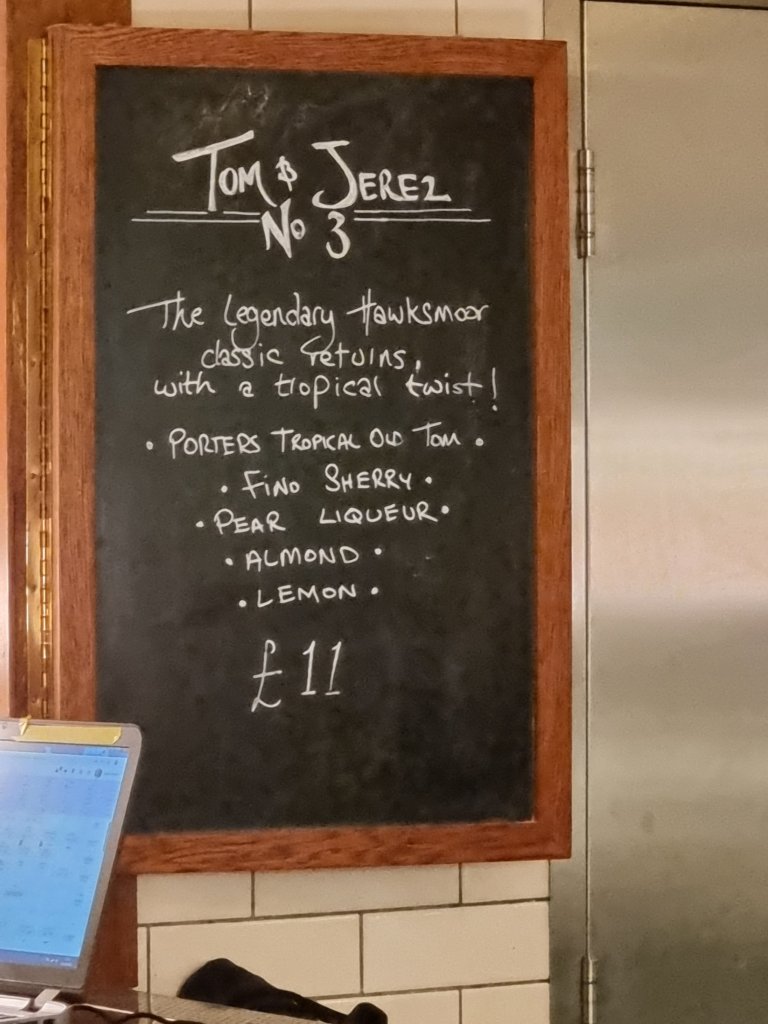 TOM & JEREZ
No 3
The Legendary Hawksmoor
classic returns,
with a tropical twist!
• PORTERS TROPICAL OLD TOM •
• FINO SHERRY •
• PEAR LIQUEUR •
• ALMOND •
• LEMON •
£11